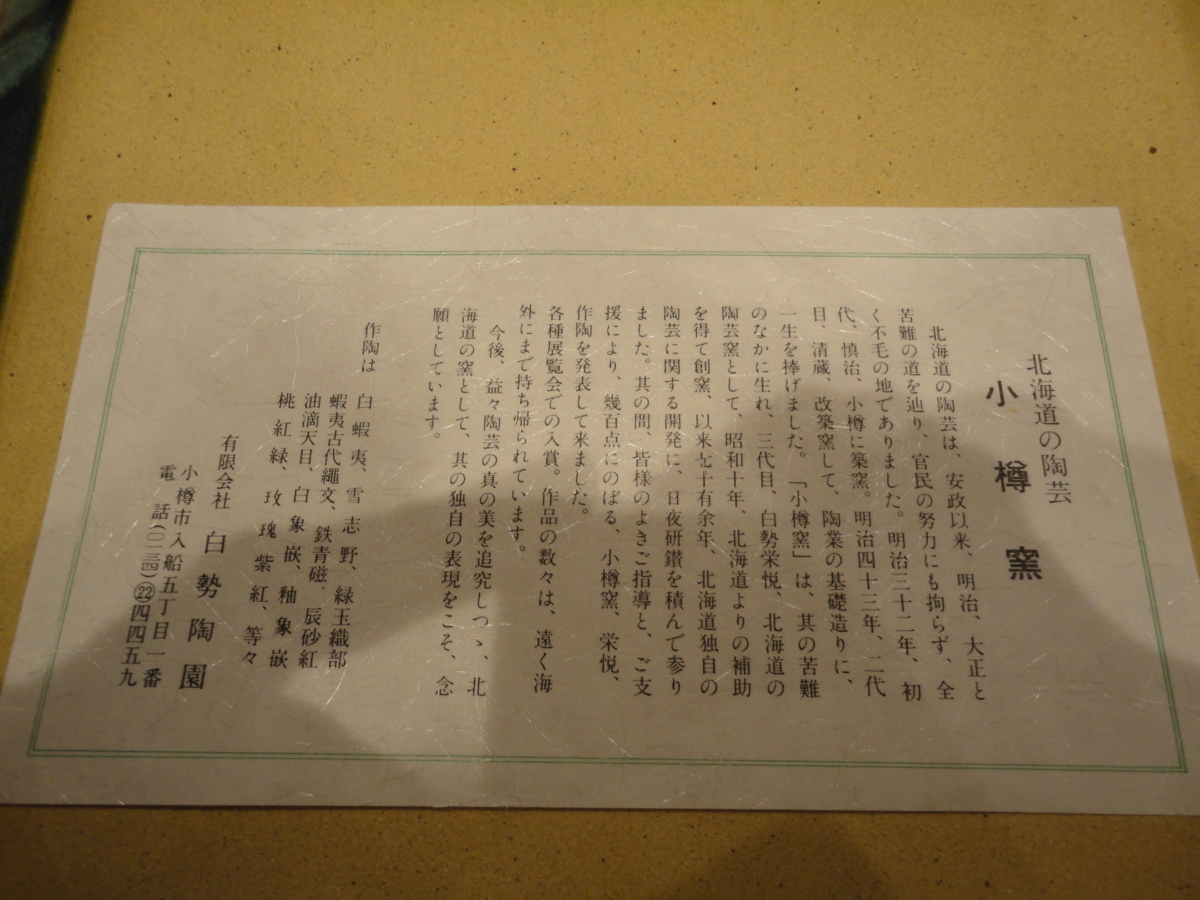 北海道の陶芸
小樽窯
北海道の陶芸は、安政以来、明治、大正と
苦難の道を辿り、官民の努力にも拘らず、全
く不毛の地でありました。明治三十二年、初
代、慎治、小樽に築窯。明治四十三年、二代
目、清蔵、改築窯して、陶業の基礎造りに、
一生を捧げました。「小樽窯」は、其の苦難
のなかに生れ、三代目、白勢栄悦、北海道の
陶芸窯として、昭和十年、北海道よりの補助
を得て創窯、以来七十有余年、北海道独自の
陶芸に関する開発に、日夜研鑚を積んで参り
ました。其の間、皆様のよきご指導と、ご支
援により、幾百点にのぼる、小樽窯、栄悦、
作陶を発表して来ました。
各種展覧会での入賞。作品の数々は、遠く海
外にまで持ち帰られています。
今後、益々陶芸の真の美を追究しつゝ、北
海道の窯として、其の独自の表現をこそ、念
願としています。
作陶は
白蝦夷、雪志野、緑玉織部
蝦夷古代縄文、鉄青磁、辰砂紅
油滴天目、白象嵌、釉象嵌
桃紅緑、玫瑰紫紅、等々
有限会社 白勢陶園
小樽市入船五丁目一番
電話(〇一三四)㉒四四五九